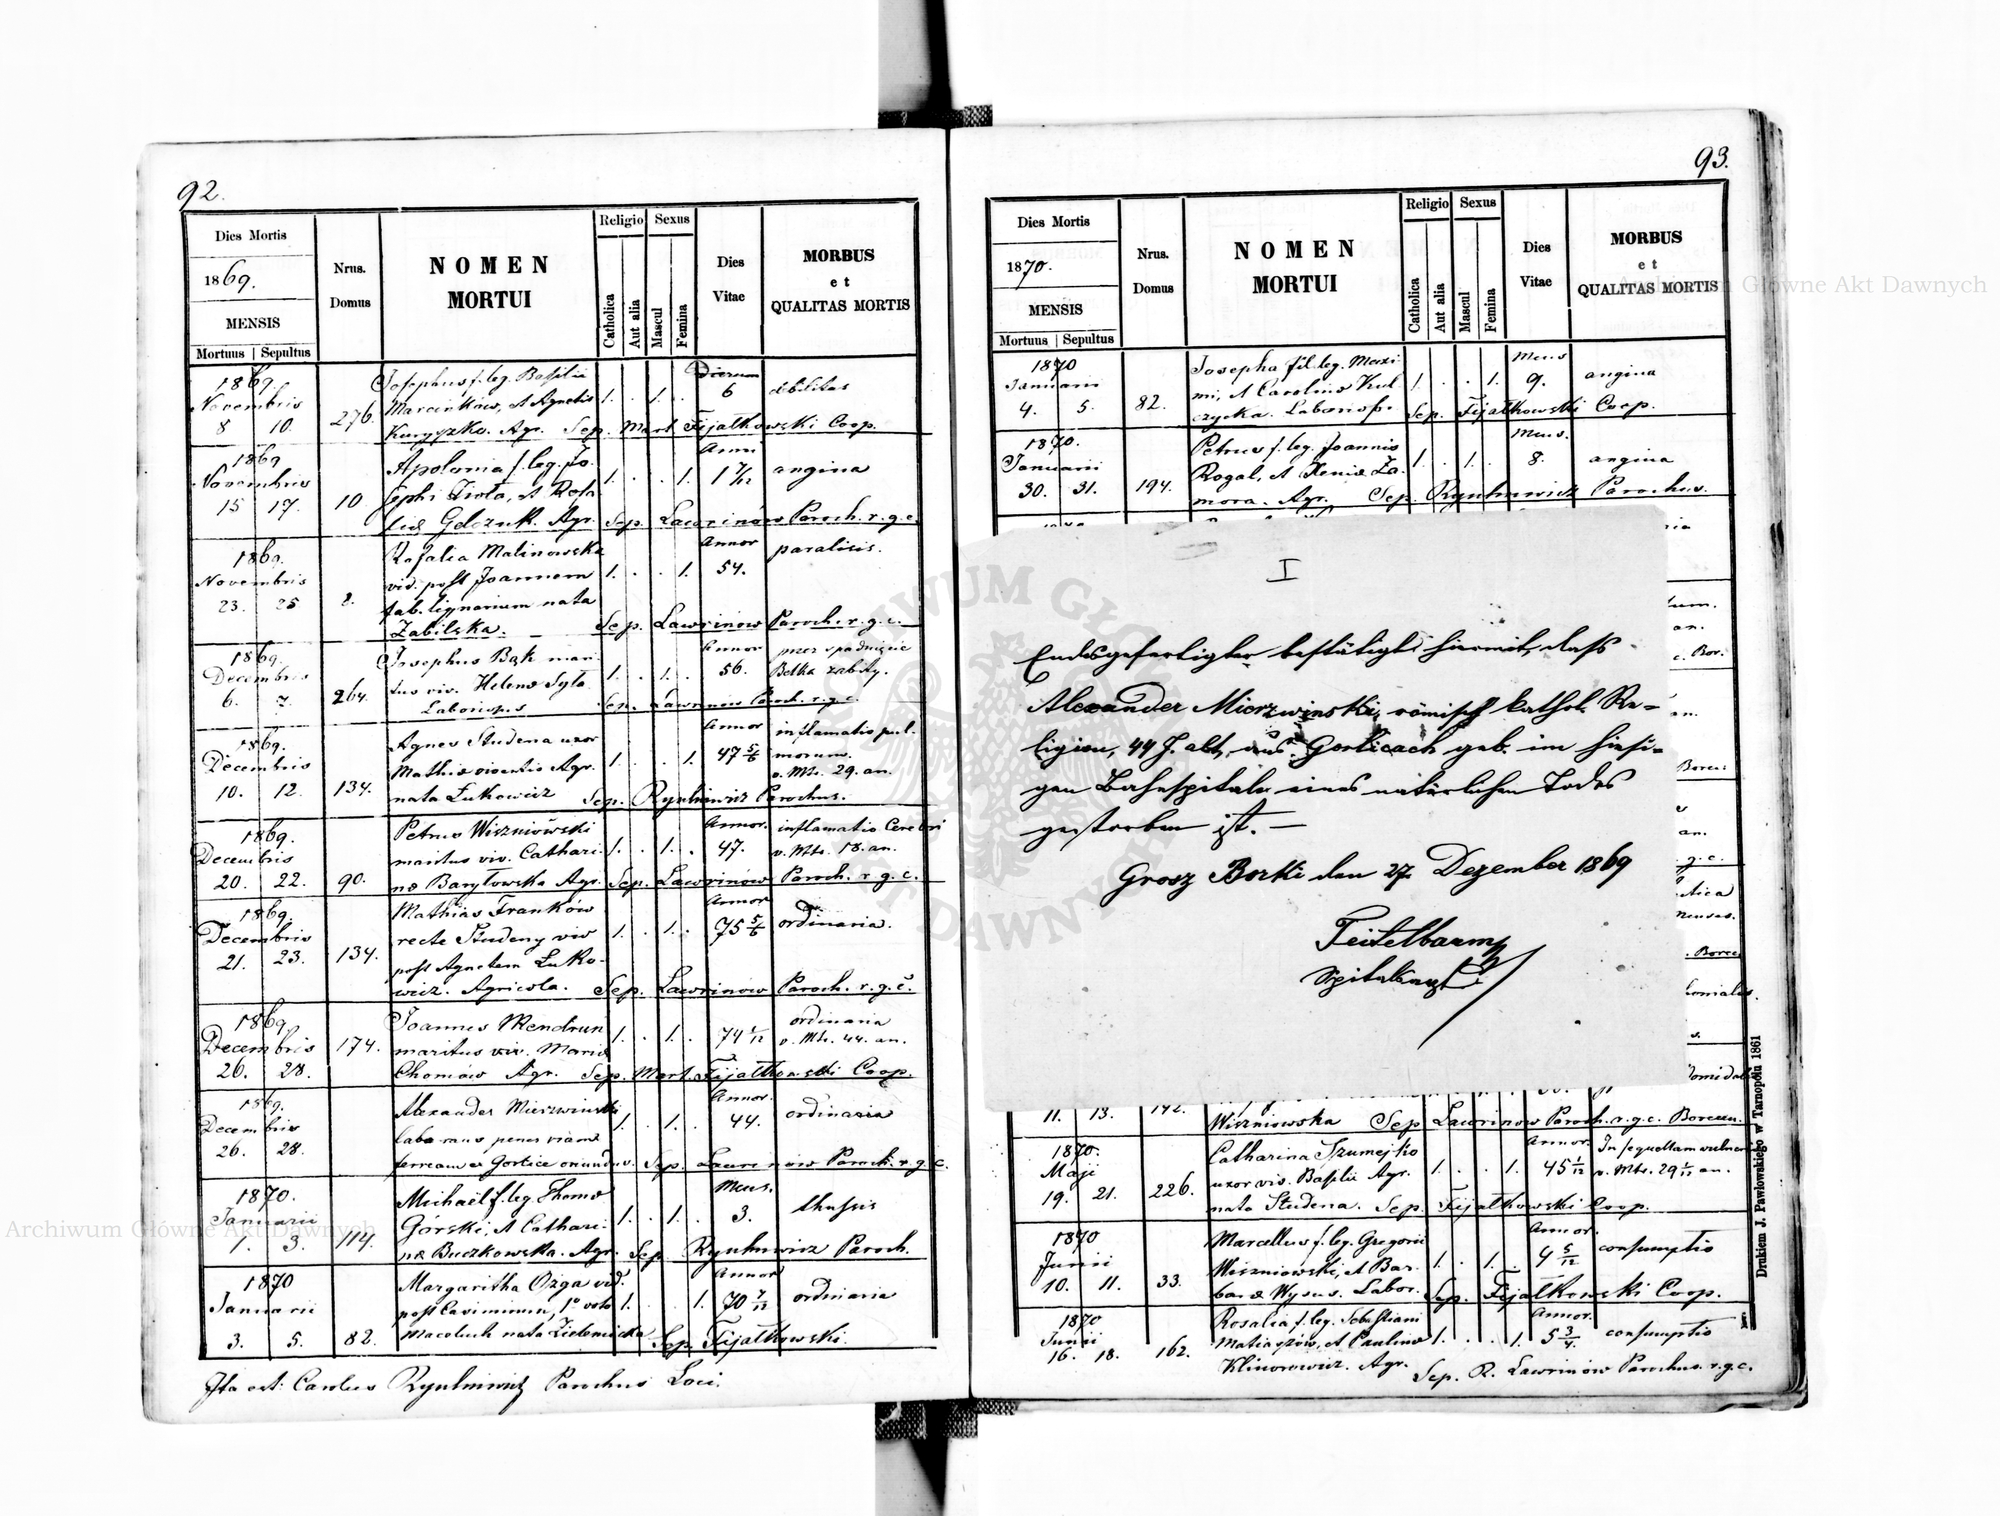 92.
Dies Mortis
1869.
MENSIS
Mortuus | Sepultus
Nrus. Domus
NOMEN MORTUI
Religio
Catholica
Aut alia
Sexus
Mascul
Femina
Dies Vitae
MORBUS et QUALITAS MORTIS
1869. Dierum
Novembris Josephus f. leg. Basilii 1. . 1. . 6 debilitas
8 10. 276. Marcinków, et Agnetis
Agr. Sep. Mart. Fijałkowski Coop.
1869 Apolonia f. leg. Jo- Anni
Novembris sephi 1. . . 1. 1 7/12 angina
15 17. 10 Agr. Sep. Lawrinów Paroch. r. g. c.
1869. Rosalia Malinowska Annor
Novembris vid. post Joannem 1. . . 1. 54. paralisis.
23. 25 2. fab. lignarium nata
Zabilska. Sep. Lawrinów Paroch. r. g. c.
1869. Josephus Bąk mari- Annor
Decembris tus viv. Helenæ 1. . 1. . 56. Belka zabity.
6. 7. 264. Sep. Lawrinów Paroch. r. g. c.
1869. Agnes Studena uxor Annor inflamatio pul-
Decembris Mathiæ viventis Agr. 1. . . 1. 47 5/6 monum.
10. 12. 134. nata Łukowicz v. Mts. 29. an.
Sep. Rynkiewicz Parochus.
1869. Petrus Wiszniówski Annor. inflamatio Cerebri
Decembris maritus viv. Cathari- 1. . 1. . 47. v. Mts. 18. an.
20. 22. 90. næ Baryłowska Agr. Sep. Lawrinów Paroch. r. g. c.
1869. Mathias Franków Annor
Decembris recte Studeny viv 1. . 1. . 75 5/6 ordinaria.
21. 23. 134. post Agnetem Łuko-
wicz. Agricola. Sep. Lawrinów Paroch. r. g. c.
1869 Joannes ordinaria
Decembris 174. maritus viv. Mariæ 1. . 1. . 74 1/12 v. Mts. 44. an.
26. 28. Chomów Agr. Sep. Mart. Fijałkowski Coop.
1869. Alexander Mierzwinski Annor.
Decembris laborans penes viam 1. . 1. . 44. ordinaria
26. 28. ferream ex Gorlice oriundus. Sep. Lawrinów Paroch. r. g. c.
1870. Michaël f. leg. Thomæ Mens.
Januarii Górski, et Cathari- 1. . 1. . 3. thussis
1. 3. 114. næ Buczkowska. Agr. Sep. Rynkiewicz Paroch.
1870 Margaritha Ożga vid. Annor
Januarii post Casimirum, 1º voto 1. . . 1. 70 7/12 ordinaria
3. 5. 82. nata Sep. Fijałkowski.
Ita est: Carolus Rynkiewicz Parochus Loci.
93.
Dies Mortis
1870.
MENSIS
Mortuus | Sepultus
Nrus. Domus
NOMEN MORTUI
Religio
Catholica
Aut alia
Sexus
Mascul
Femina
Dies Vitae
MORBUS et QUALITAS MORTIS
1870 Josepha fil. leg. Maxi- Mens
Januarii mi, et Carolinæ Kul- 1. . . 1. 9. angina
4. 5. 82. czycka. Sep. Fijałkowski Coop.
1870. Petrus f. leg. Joannis Mens.
Januarii Rogal, et Xeniæ Za- 1. . 1. . 8. angina
30. 31. 194. mora. Agr. Sep. Rynkiewicz Parochus.
I
Endesgefertigter bestätigt hiermit, dass
Alexander Mierzwinski, römisch kathol. Re-
ligion, 44 J. alt, aus Gorlicach geb. im hiesi-
gen Bahnspitale eines natürlichen Todes
gestorben ist. —
Grosz Borki den 27. Dezember 1869
Teitelbaum
Spitalsarzt
11. 13. 142.
Wiszniowska Sep. Lawrinów Paroch. r. g. c. Borcen.
1870. Catharina Szumejko Annor.
Maji uxor viv. Basilii Agr. 1. . . 1. 45 1/12 v. Mts. 29 1/12 an.
19. 21. 226. nata Studena. Sep. Fijałkowski Coop.
1870 Marcellus f. leg. Gregorii Annor.
Junii Wiszniowski, et Bar- 1. . 1. . 4 5/12 consumptio
10. 11. 33. baræ Labor. Sep. Fijałkowski Coop.
1870 Rosalia f. leg. Sebastiani Annor.
Junii et Paulinæ 1. . . 1. 5 3/4 consumptio
16. 18. 162. Klimowicz. Agr. Sep. R. Lawrinów Parochus r. g. c.
Drukiem J. Pawłowskiego w Tarnopolu 1861
ARCHIWUM GŁÓWNE AKT DAWNYCH
Archiwum Główne Akt Dawnych
Archiwum Główne Akt Dawnych